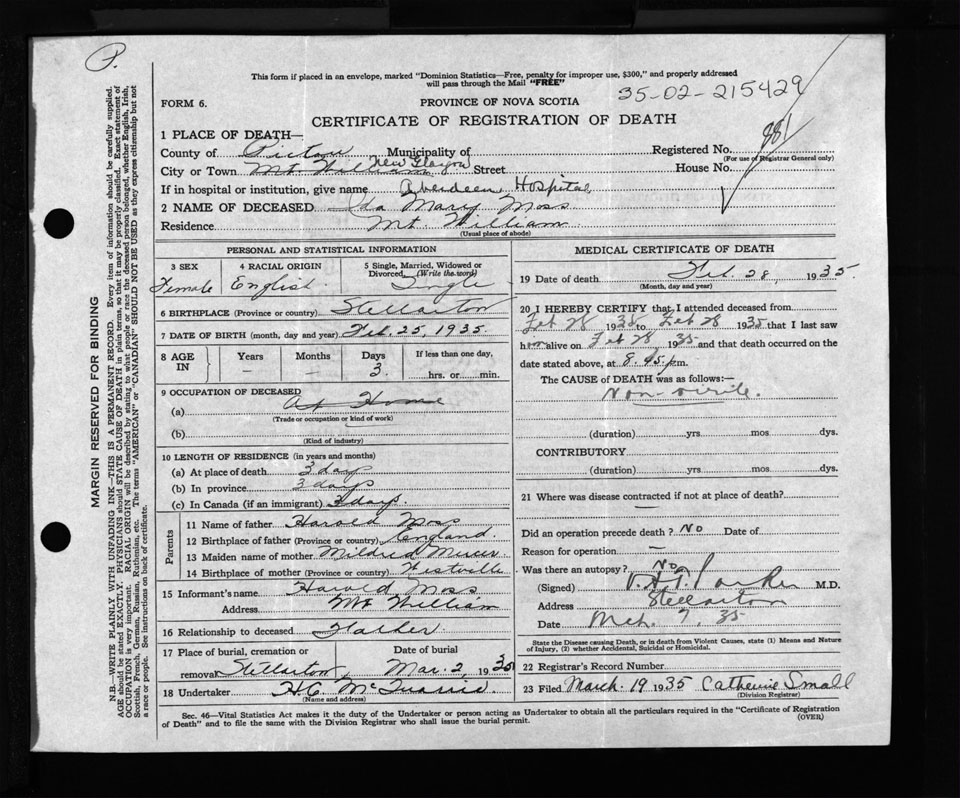 P.
This form if placed in an envelope, marked "Dominion Statistics—Free, penalty for improper use, $300," and properly addressed
will pass through the Mail "FREE"
35-02-215429
FORM 6.
PROVINCE OF NOVA SCOTIA
CERTIFICATE OF REGISTRATION OF DEATH
1 PLACE OF DEATH—
881
County of Pictou Municipality of Registered No.
(For use of Registrar General only)
New Glasgow
City or Town Mt. William Street House No.
If in hospital or institution, give name Aberdeen Hospital
2 NAME OF DECEASED Ida Mary Moss
Residence Mt. William
(Usual place of abode)
PERSONAL AND STATISTICAL INFORMATION
3 SEX 4 RACIAL ORIGIN 5 Single, Married, Widowed or Divorced (Write the word)
Female English Single
6 BIRTHPLACE (Province or country) Stellarton
7 DATE OF BIRTH (month, day and year) Feb. 25, 1935
8 AGE IN Years Months Days If less than one day,
— — 3 hrs. or min.
9 OCCUPATION OF DECEASED
(a) At Home
(Trade or occupation or kind of work)
(b)
(Kind of industry)
10 LENGTH OF RESIDENCE (in years and months)
(a) At place of death 3 days
(b) In province 3 days
(c) In Canada (if an immigrant) 3 days.
Parents
11 Name of father Harold Moss
12 Birthplace of father (Province or country) England
13 Maiden name of mother Mildred
14 Birthplace of mother (Province or country) Westville
15 Informant's name Harold Moss
Address Mt William
16 Relationship to deceased Father.
17 Place of burial, cremation or removal Date of burial
Stellarton, Mar. 2, 1935
18 Undertaker H.C. McQuarrie.
(Name and address)
MEDICAL CERTIFICATE OF DEATH
19 Date of death Feb. 28, 1935
(Month, day and year)
20 I HEREBY CERTIFY that I attended deceased from
Feb 28 1935 to Feb 28 1935 that I last saw
h alive on Feb 28 1935 and that death occurred on the
date stated above, at 8.45 p.m.
The CAUSE OF DEATH was as follows:—
Non-
(duration) yrs mos dys.
CONTRIBUTORY
(duration) yrs mos dys.
21 Where was disease contracted if not at place of death?
—
Did an operation precede death? No Date of
Reason for operation —
Was there an autopsy? No
(Signed) Parker M.D.
Address Stellarton
Date Mch. 7, 35
State the Disease causing Death, or in death from Violent Causes, state (1) Means and Nature
of Injury, (2) whether Accidental, Suicidal or Homicidal.
22 Registrar's Record Number
23 Filed March 19 1935 Catherine Small
(Division Registrar)
Sec. 46—Vital Statistics Act makes it the duty of the Undertaker or person acting as Undertaker to obtain all the particulars required in the "Certificate of Registration
of Death" and to file the same with the Division Registrar who shall issue the burial permit.
(OVER)
MARGIN RESERVED FOR BINDING
N.B.—WRITE PLAINLY WITH UNFADING INK—THIS IS A PERMANENT RECORD. Every item of information should be carefully supplied.
AGE should be stated EXACTLY. PHYSICIANS should STATE CAUSE OF DEATH in plain terms, so that it may be properly classified. Exact statement of
OCCUPATION is very important. RACIAL ORIGIN will be described by stating to what people or race the deceased person belonged, whether English, Irish,
Scottish, French, German, Russian, Ruthenian, etc. The terms "AMERICAN" or "CANADIAN" SHOULD NOT BE USED as they express citizenship but not
a race or people. See instructions on back of certificate.